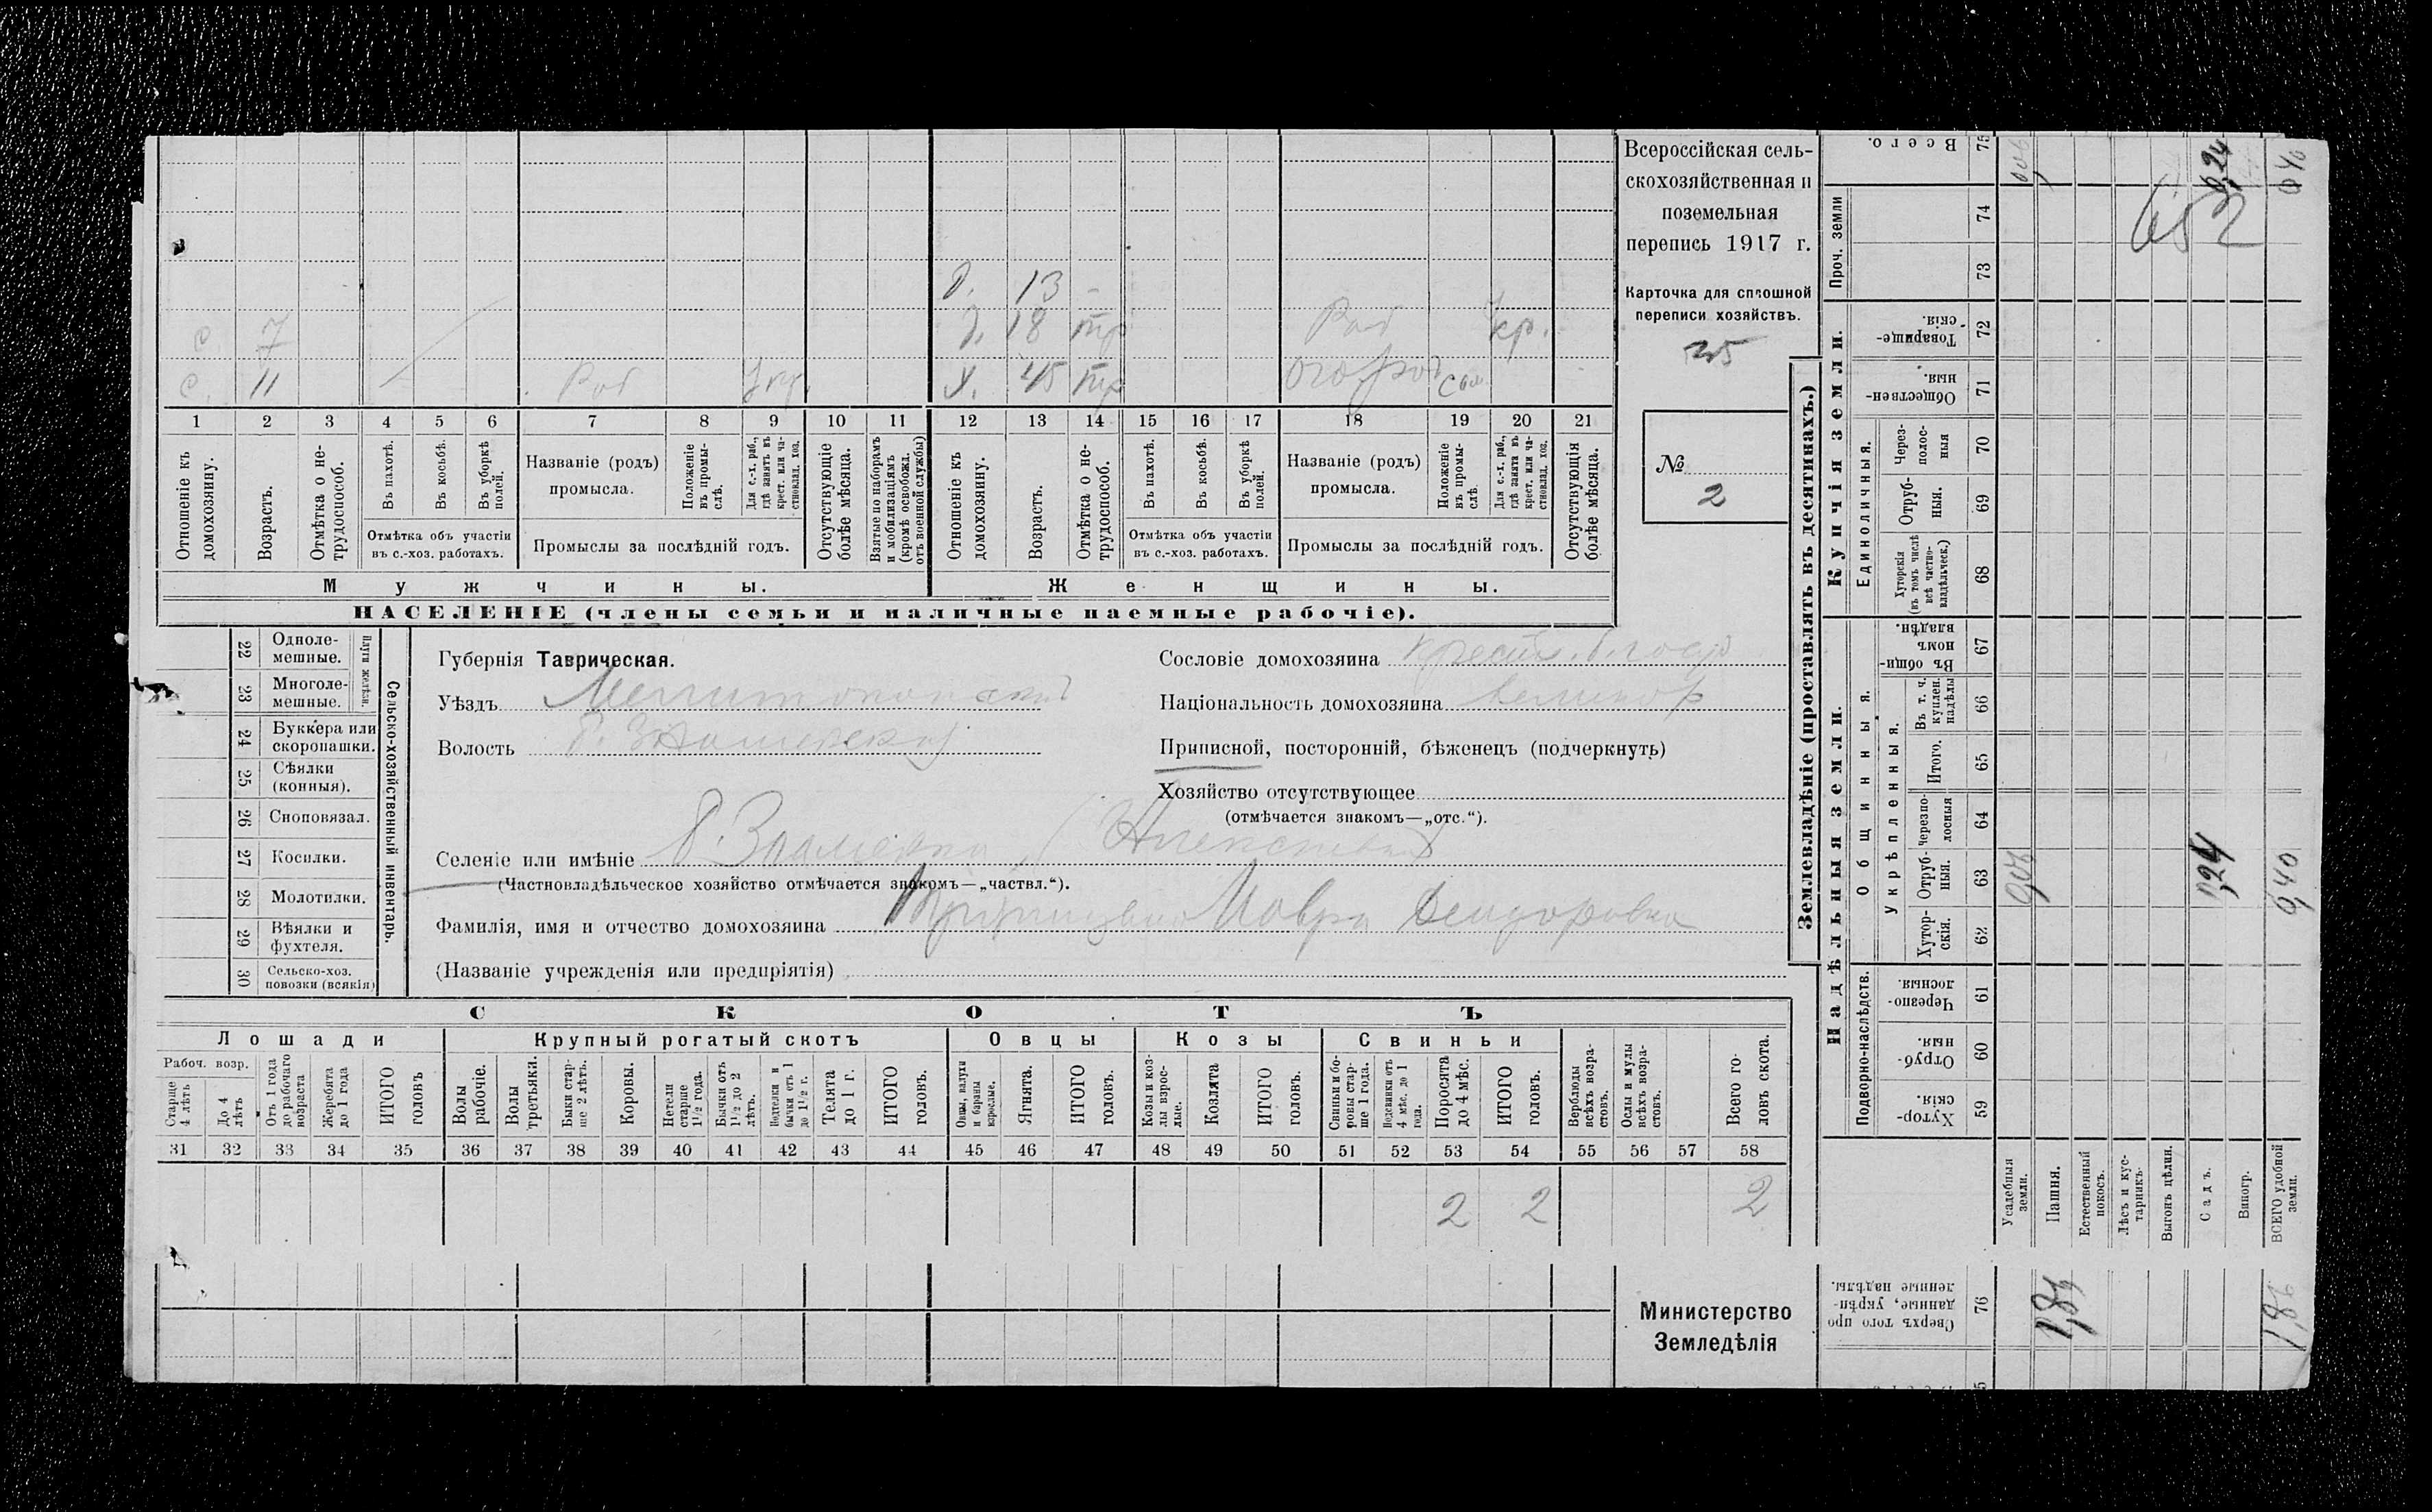 Всероссійская сель-
скохозяйственная и
поземельная
перепись 1917 г.
Карточка для сплошной
переписи хозяйствъ.
№
2
Д. 13 -
с 7
Д. 18 тр Раб кр.
с. 11 Раб
Х. 45 тр огород
1 2 3 4 5 6 7 8 9 10 11 12 13 14 15 16 17 18 19 20 21
Отношеніе къ домохозяину.
Возрастъ.
Отмѣтка о не-трудоспособ.
Въ пахотѣ.
Въ косьбѣ.
Въ уборкѣ полей.
Отмѣтка объ участіи въ с.-хоз. работахъ.
Названіе (родъ) промысла.
Положеніе въ промы-слѣ.
Для с.-х. раб., гдѣ занятъ въ крест. или ча-стновлад. хоз.
Промыслы за послѣдній годъ.
Отсутствующіе болѣе мѣсяца.
Взятые по наборамъ и мобилизаціямъ (кромѣ освобожд. отъ военной службы)
Отношеніе къ домохозяину.
Возрастъ.
Отмѣтка о не-трудоспособ.
Въ пахотѣ.
Въ косьбѣ.
Въ уборкѣ полей.
Отмѣтка объ участіи въ с.-хоз. работахъ.
Названіе (родъ) промысла.
Положеніе въ промы-слѣ.
Для с.-х. раб., гдѣ занята въ крест. или ча-стновлад. хоз.
Промыслы за послѣдній годъ.
Отсутствующія болѣе мѣсяца.
Мужчины.
Женщины.
НАСЕЛЕНІЕ (члены семьи и наличные наемные рабочіе).
22 Одноле-мешные.
23 Многоле-мешные.
Плуги желѣзн.
24 Буккера или скоропашки.
25 Сѣялки (конныя).
26 Сноповязал.
27 Косилки.
28 Молотилки.
29 Вѣялки и фухтеля.
30 Сельско-хоз. повозки (всякія)
Сельско-хозяйственный инвентарь.
Губернія Таврическая.
Уѣздъ Мелитопольскій
Волость Б. Знаменская
Селеніе или имѣніе Б. Знаменка
(Частновладѣльческое хозяйство отмѣчается знакомъ—„частвл.“).
Фамилія, имя и отчество домохозяина Мавра
(Названіе учрежденія или предпріятія)
Сословіе домохозяина
Національность домохозяина великор
Приписной, посторонній, бѣженецъ (подчеркнуть)
Хозяйство отсутствующее
(отмѣчается знакомъ—„отс.“).
СКОТЪ
Лошади
Крупный рогатый скотъ
Овцы
Козы
Свиньи
Рабоч. возр.
Старше 4 лѣтъ
До 4 лѣтъ
Отъ 1 года до рабочаго возраста
Жеребята до 1 года
ИТОГО головъ
Волы рабочіе.
Волы третьяки.
Быки стар-ше 2 лѣтъ.
Коровы.
Нетели старше 1½ года.
Бычки отъ 1½ до 2 лѣтъ.
Подтелки и бычки отъ 1 до 1½ г.
Телята до 1 г.
ИТОГО головъ.
Овцы, валухи и бараны взрослые.
Ягнята.
ИТОГО головъ.
Козы и коз-лы взрос-лые.
Козлята
ИТОГО головъ.
Свиньи и бо-ровы стар-ше 1 года.
Подсвинки отъ 4 мѣс. до 1 года.
Поросята до 4 мѣс.
ИТОГО головъ.
Верблюды всѣхъ возра-стовъ.
Ослы и мулы всѣхъ возра-стовъ.
Всего го-ловъ скота.
31 32 33 34 35 36 37 38 39 40 41 42 43 44 45 46 47 48 49 50 51 52 53 54 55 56 57 58
2 2 2
Министерство
Земледѣлія
Землевладѣніе (проставлять въ десятинахъ.)
Купчія земли.
Надѣльныя земли.
Всего. 75
Проч. земли 74 73
Товарище-скія. 72
Обществен-ныя. 71
Единоличныя.
Через-полос-ныя 70
Отруб-ныя. 69
Хуторскія (въ томъ числѣ всѣ частно-владѣльческ.) 68
Общинныя.
Въ общи-номъ владѣн. 67
Укрѣпленныя.
Въ т. ч. куплен. надѣлы 66
Итого. 65
Черезпо-лосныя 64
Отруб-ныя. 63
Хутор-скія. 62
Подворно-наслѣдств.
Черезпо-лосныя. 61
Отруб-ныя. 60
Хутор-скія. 59
Усадебныя земли.
Пашня.
Естественный покосъ.
Лѣсъ и кус-тарникъ
Выгонъ цѣлин.
Садъ.
Виногр.
ВСЕГО удобной земли.
Сверхъ того про-данные, укрѣп-ленные надѣлы. 76
0,24
652
0,24
0,40
1,86
1,86